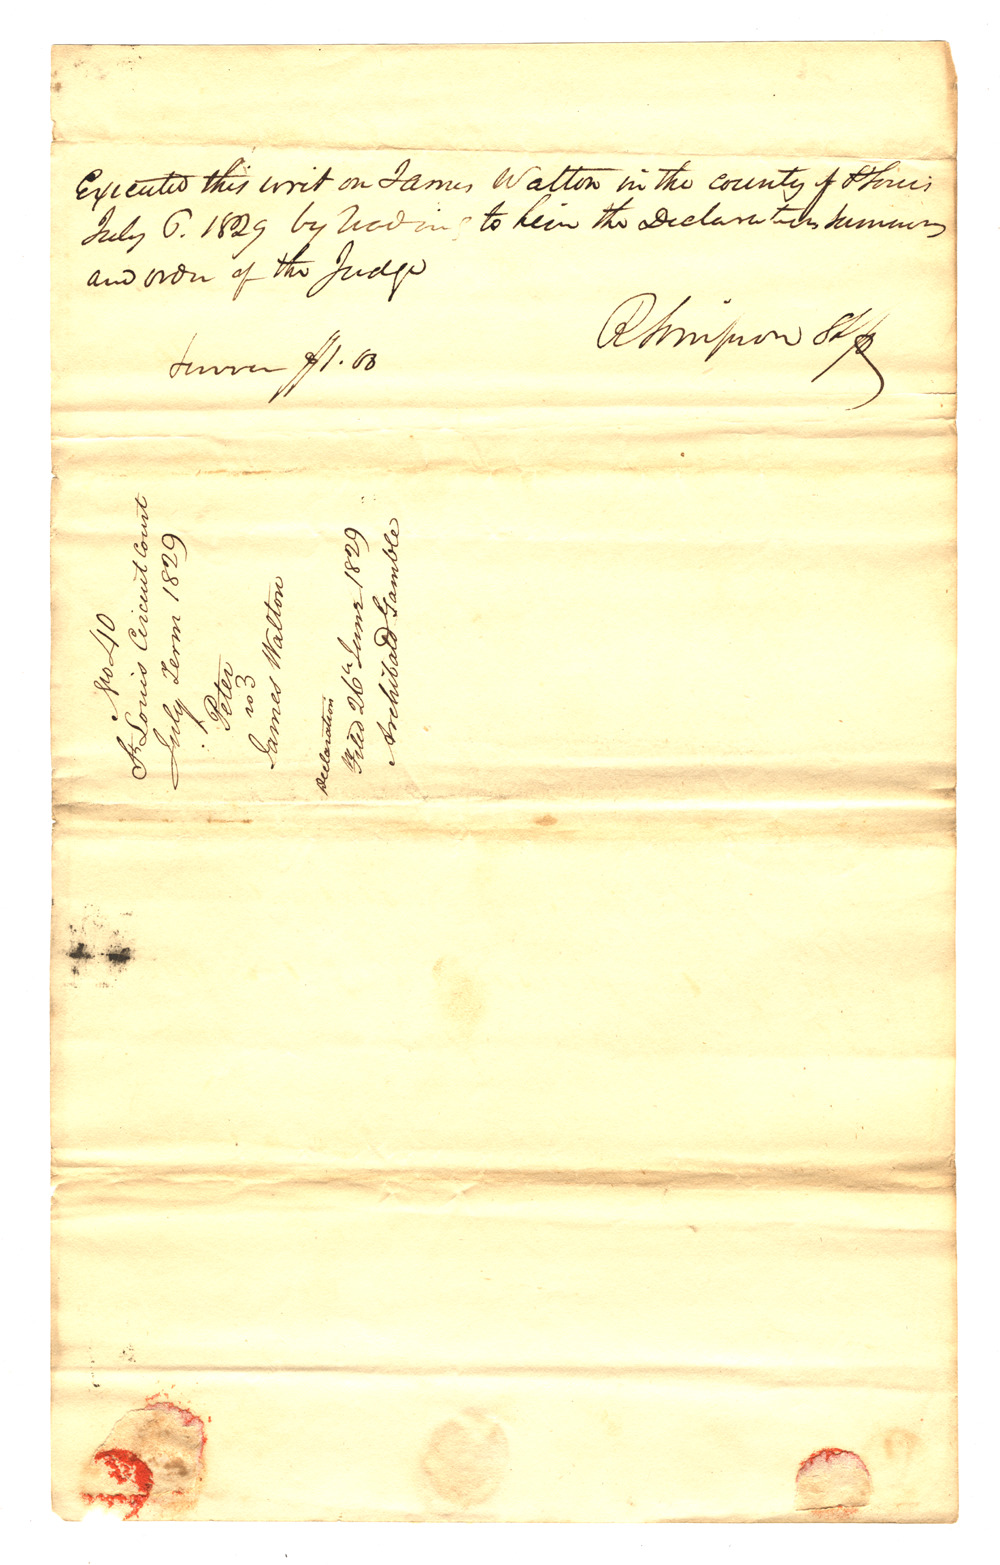 Executed this writ on James Walton in the county of St Louis
July 6. 1829 by reading to him the Declaration summons
and order of the Judge
R Simpson Shff
$1.00
No 40
St Louis Circuit Court
July Term 1829
Peter
vs
James Walton
Declaration
Filed 26th June 1829
Archibald Gamble